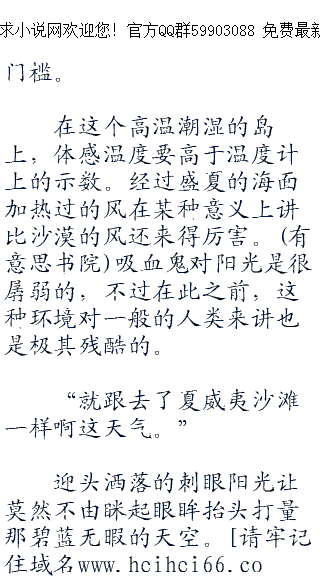 求小说网欢迎您！官方QQ群59903088 免费最新
门槛。
在这个高温潮湿的岛
上，体感温度要高于温度计
上的示数。经过盛夏的海面
加热过的风在某种意义上讲
比沙漠的风还来得厉害。(有
意思书院)吸血鬼对阳光是很
孱弱的，不过在此之前，这
种环境对一般的人类来讲也
是极其残酷的。
“就跟去了夏威夷沙滩
一样啊这天气。”
迎头洒落的刺眼阳光让
莫然不由眯起眼眸抬头打量
那碧蓝无暇的天空。[请牢记
住域名www.hcihci66.co